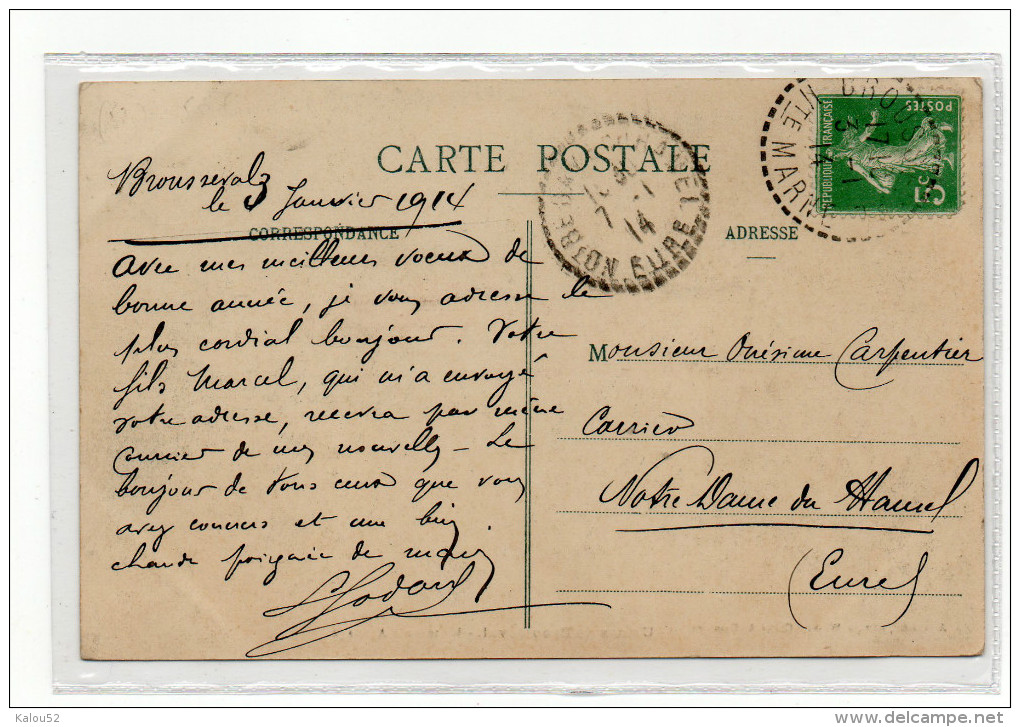 CARTE POSTALE
Brousseval
le 3 Janvier 1914
CORRESPONDANCE
Avec mes meilleurs voeux de
bonne année, je vous adresse le
plus cordial bonjour. Votre
fils Marcel, qui m'a envoyé
votre adresse, recevra par même
courrier de mes nouvelles - Le
bonjour de tous ceux que vous
avez connus et une bien
chaude poignée de mains
ADRESSE
Monsieur Onésime Carpentier
Carrier
Notre Dame du Hamel
(Eure)
REPUBLIQUE FRANÇAISE
POSTES
5c
3 -1
14
HTE MARNE
EURE
14
Kalou52
www.delcampe.net